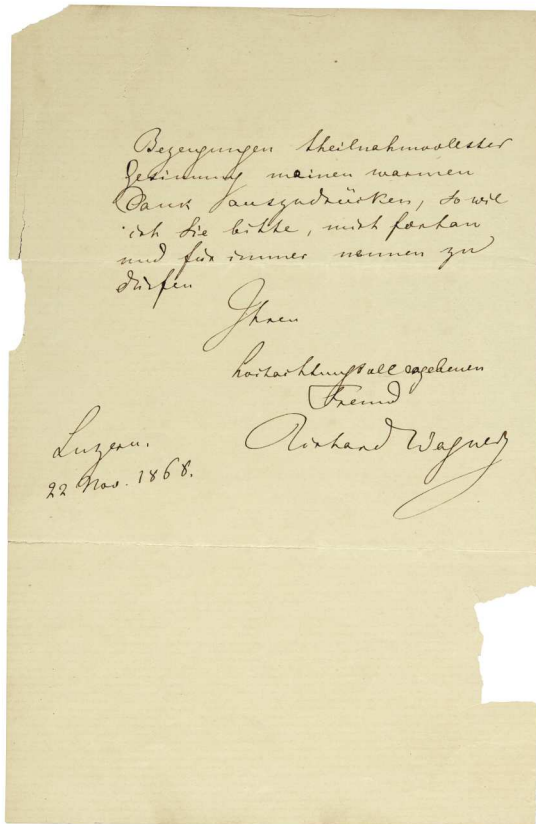 Bezeugungen theilnahmvollster
Gesinnung meinen warmen
Dank auszudrücken, so wie
ich Sie bitte, mich fortan
und für immer nennen zu
dürfen
Ihren
hochachtungsvoll ergebenen
Freund
Richard Wagner
Luzern.
22 Nov. 1868.